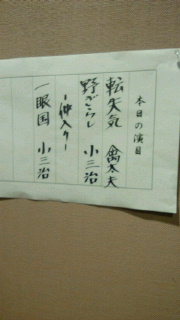 本日の演目
転失気 禽太夫
野ざらし 小三治
ー仲入りー
一眼国 小三治